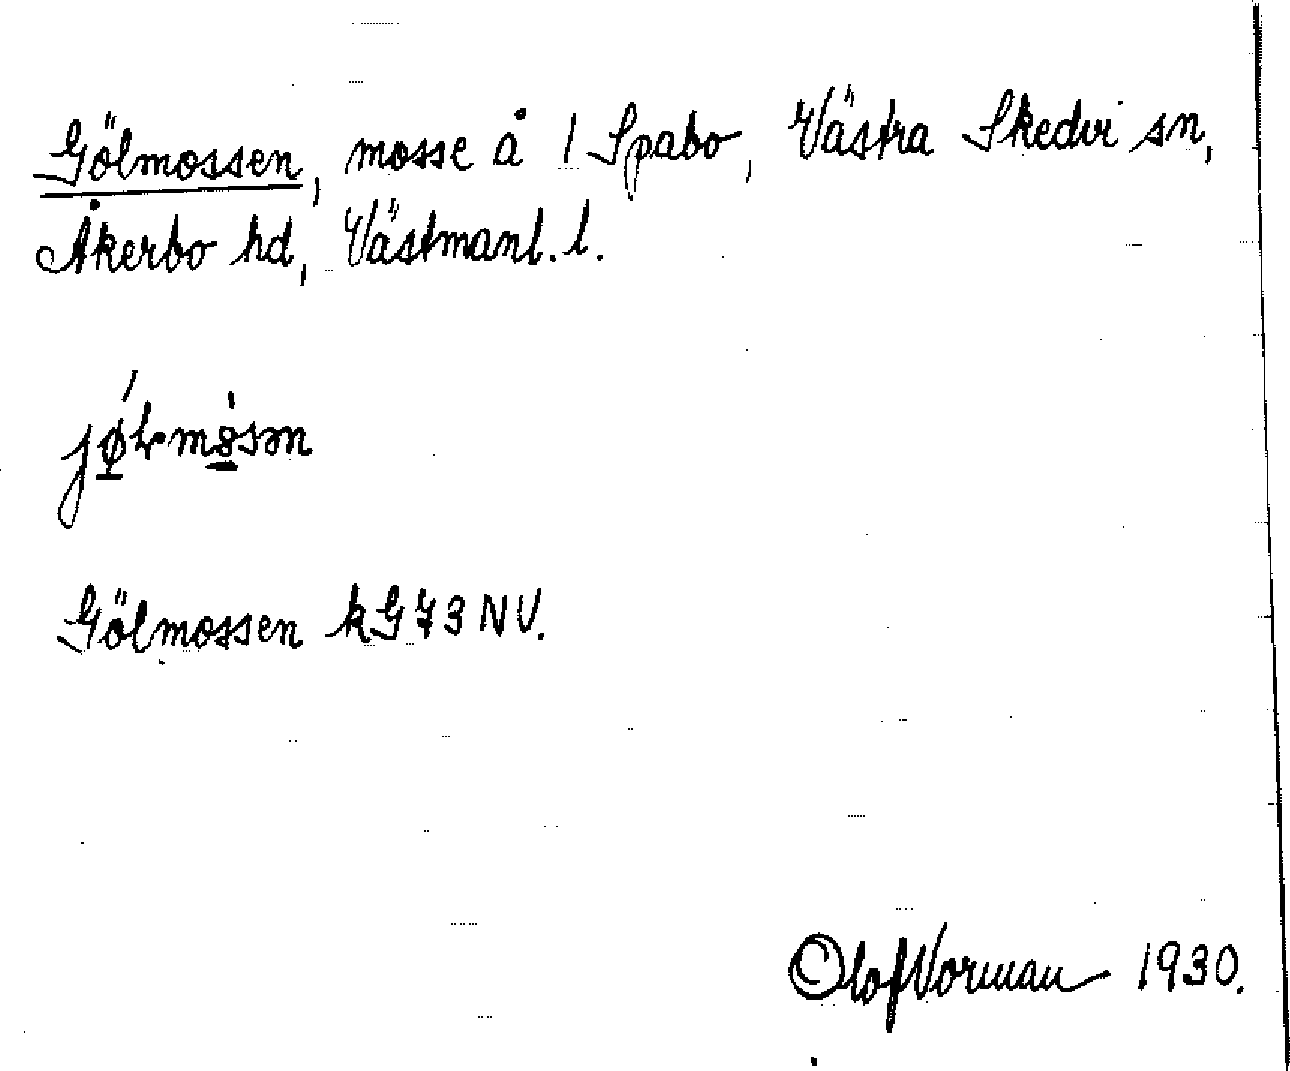 Gölmossen, mosse å 1 Spabo, Västra Skedvi sn,
Åkerbo hd, Västmanl. l.
Gölmossen kG73NV.
Olof Norman 1930.